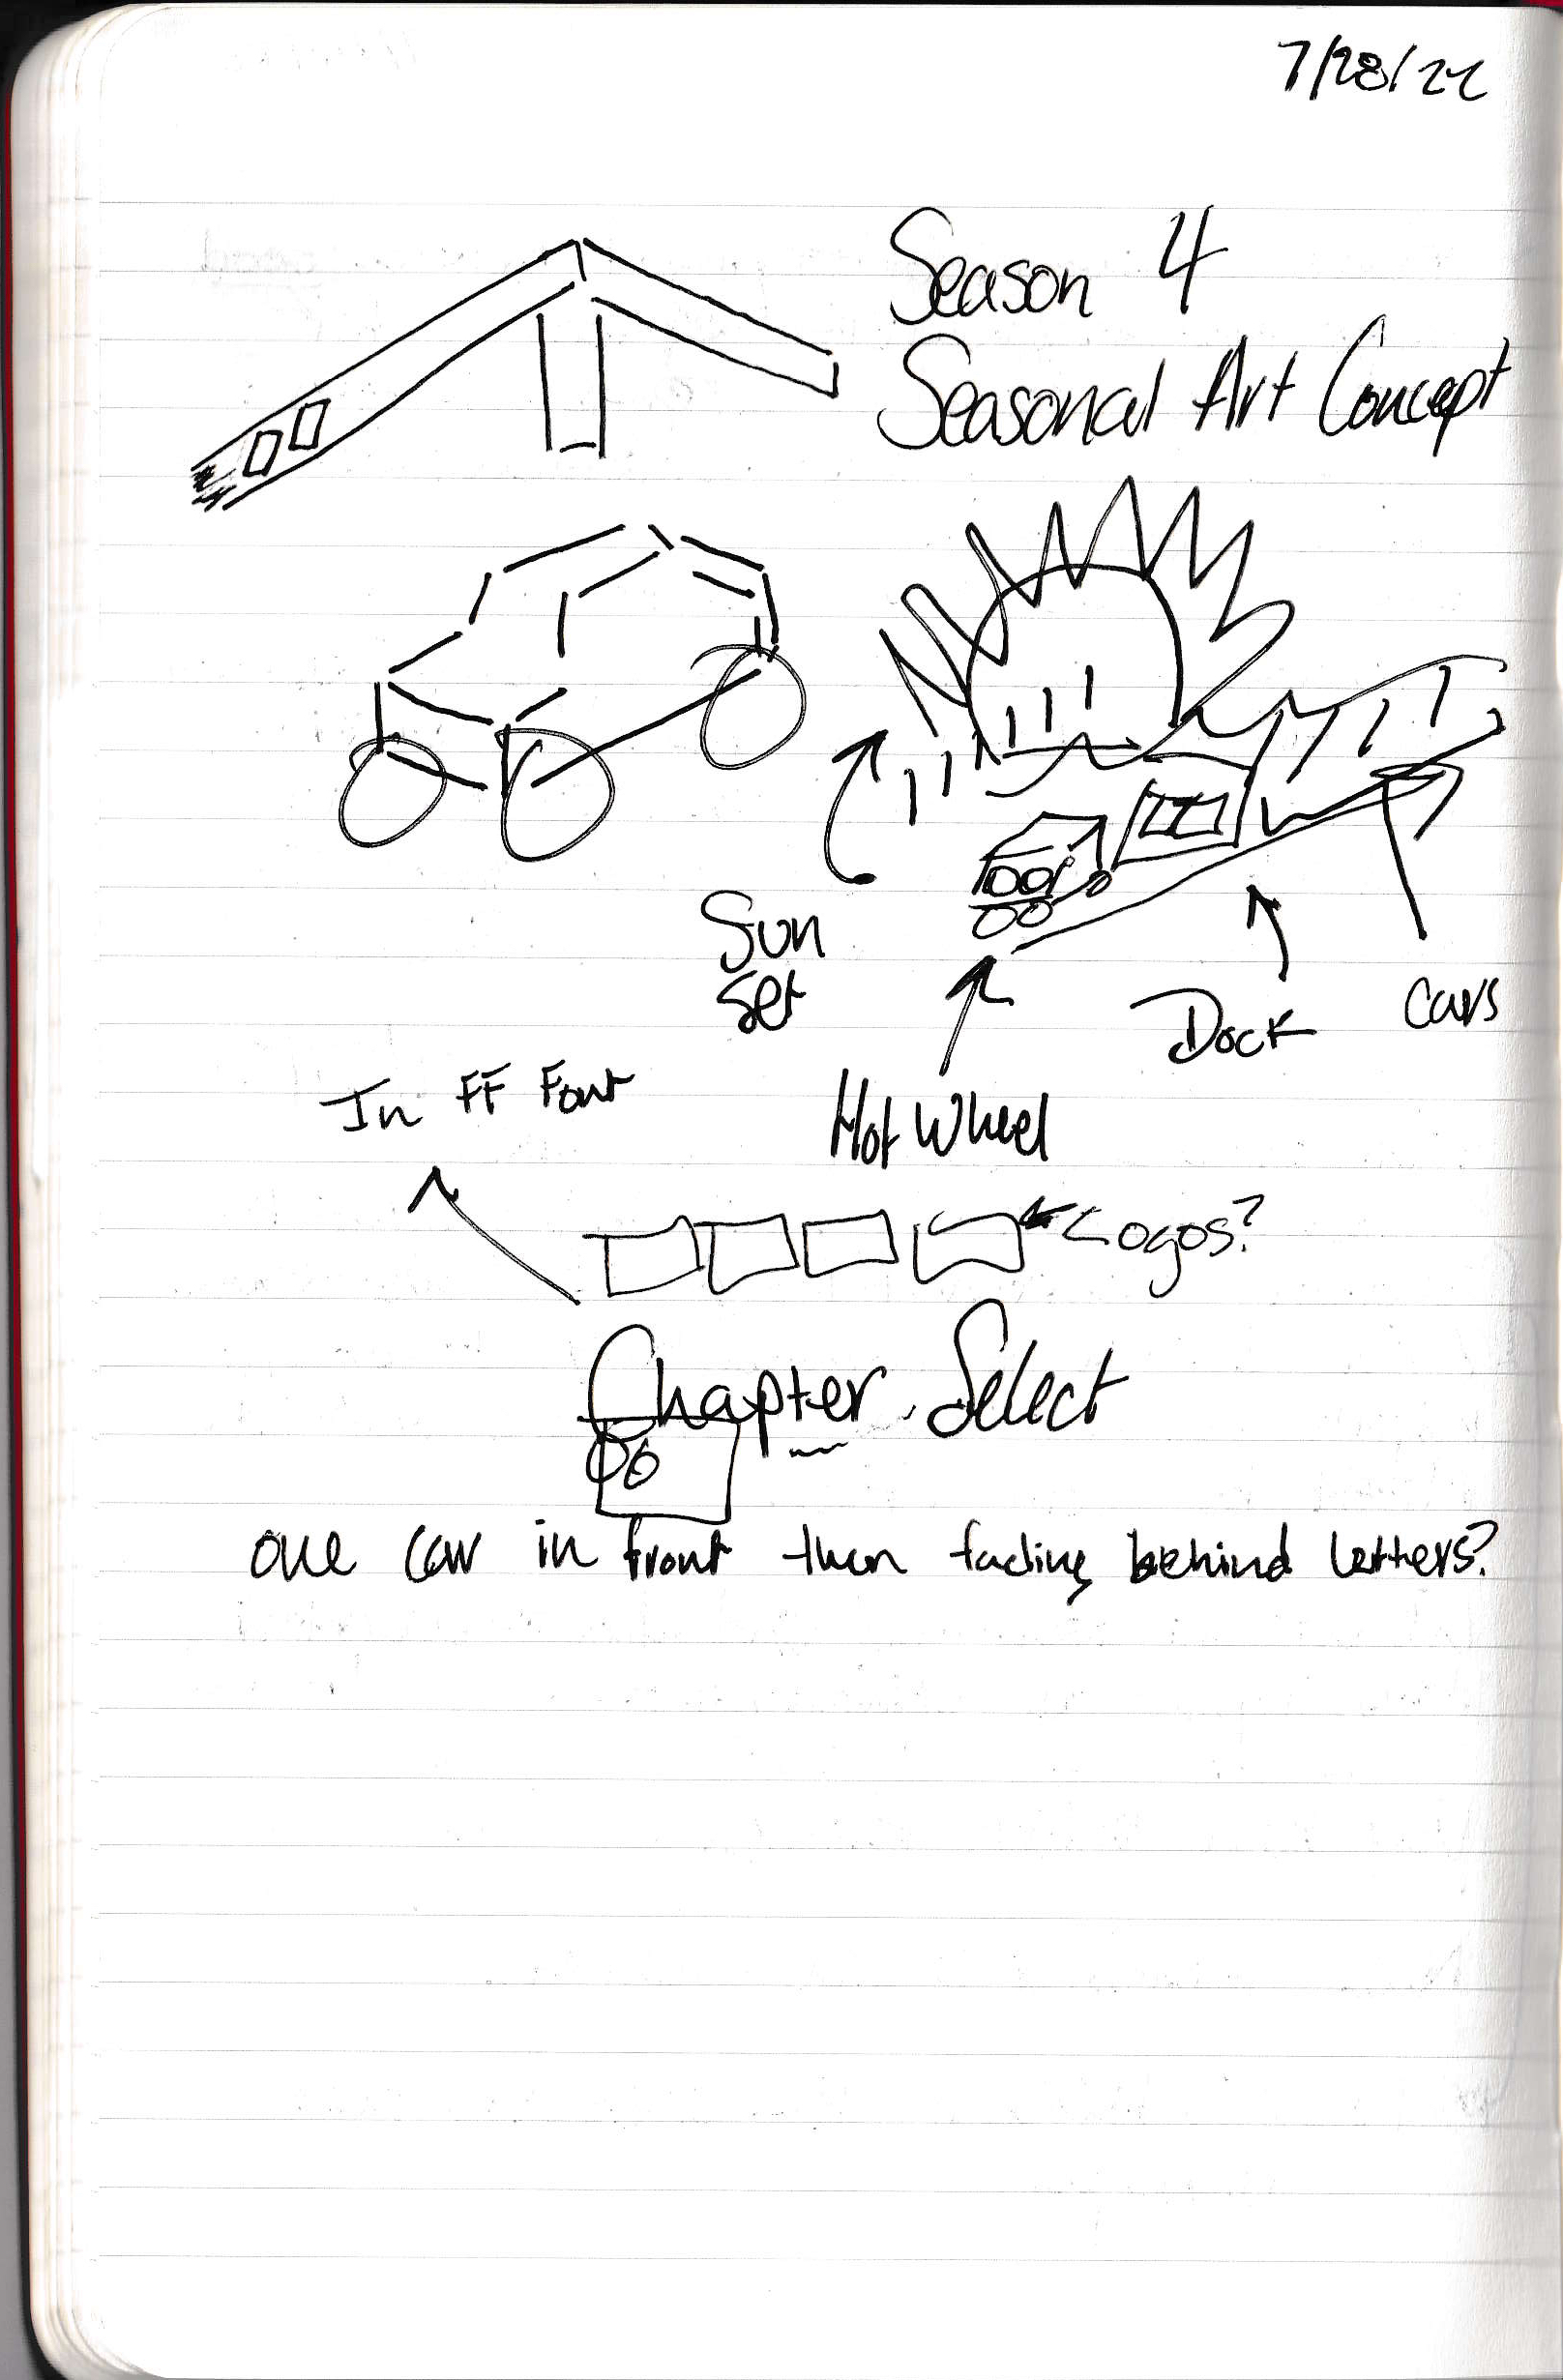 7/28/22
Season 4
Seasonal Art Concept
Sun
set
Dock
Cars
Hot Wheel
In FF Font
Logos?
Chapter Select
one car in front then fading behind letters?